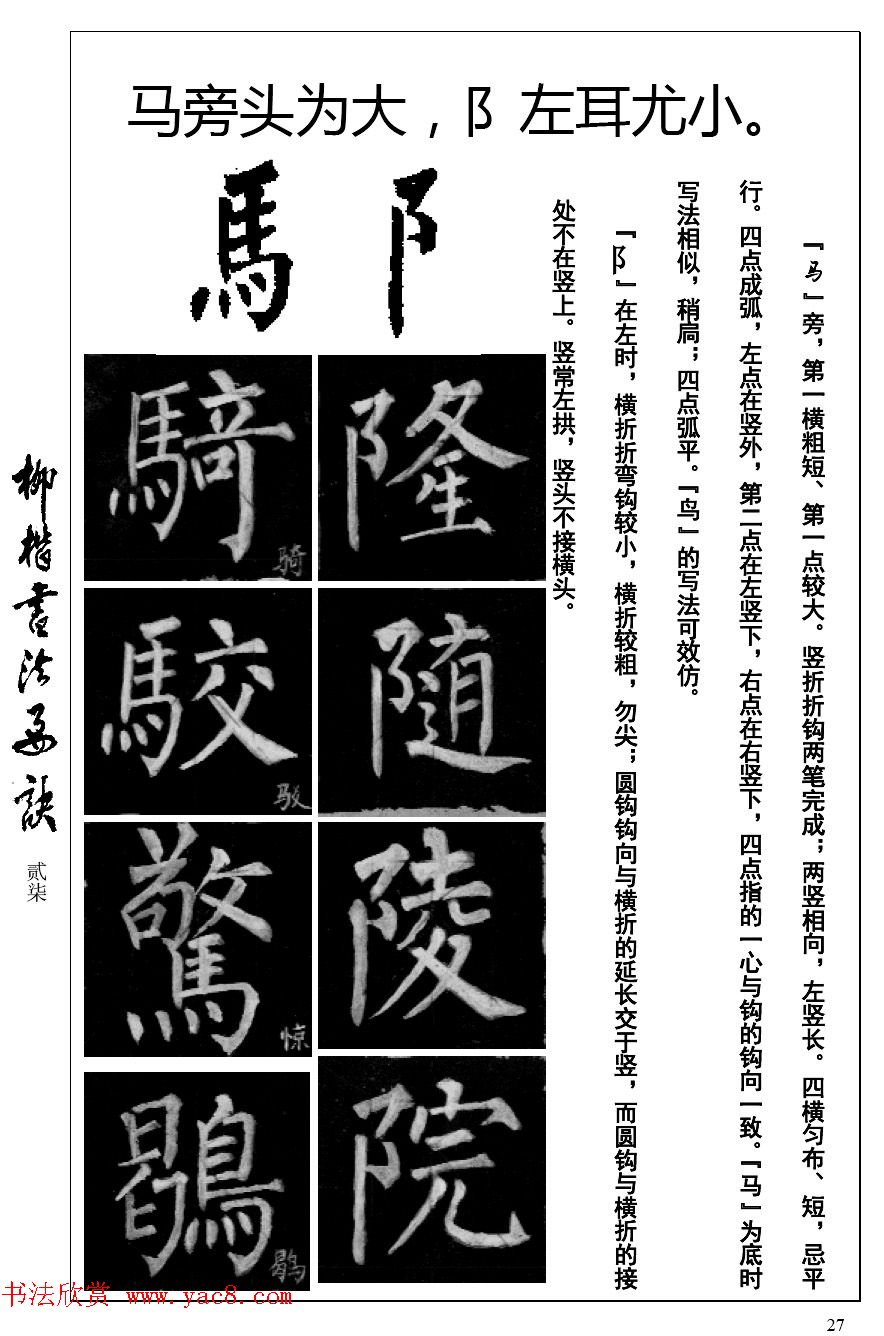 马旁头为大，阝左耳尤小。
馬 阝
『马』旁，第一横粗短、第一点较大。竖折折钩两笔完成；两竖相向，左竖长。四横匀布、短，忌平
行。四点成弧，左点在竖外，第二点在左竖下，右点在右竖下，四点指的一心与钩的钩向一致。『马』为底时
写法相似，稍扃；四点弧平。『鸟』的写法可效仿。
『阝』在左时，横折折弯钩较小，横折较粗，勿尖；圆钩钩向与横折的延长交于竖，而圆钩与横折的接
处不在竖上。竖常左拱，竖头不接横头。
騎 骑
隆
駮 驳
随
驚 惊
陵
鶡 鹖
院
柳楷书法要诀
贰柒
书法欣赏 www.yac8.com
27